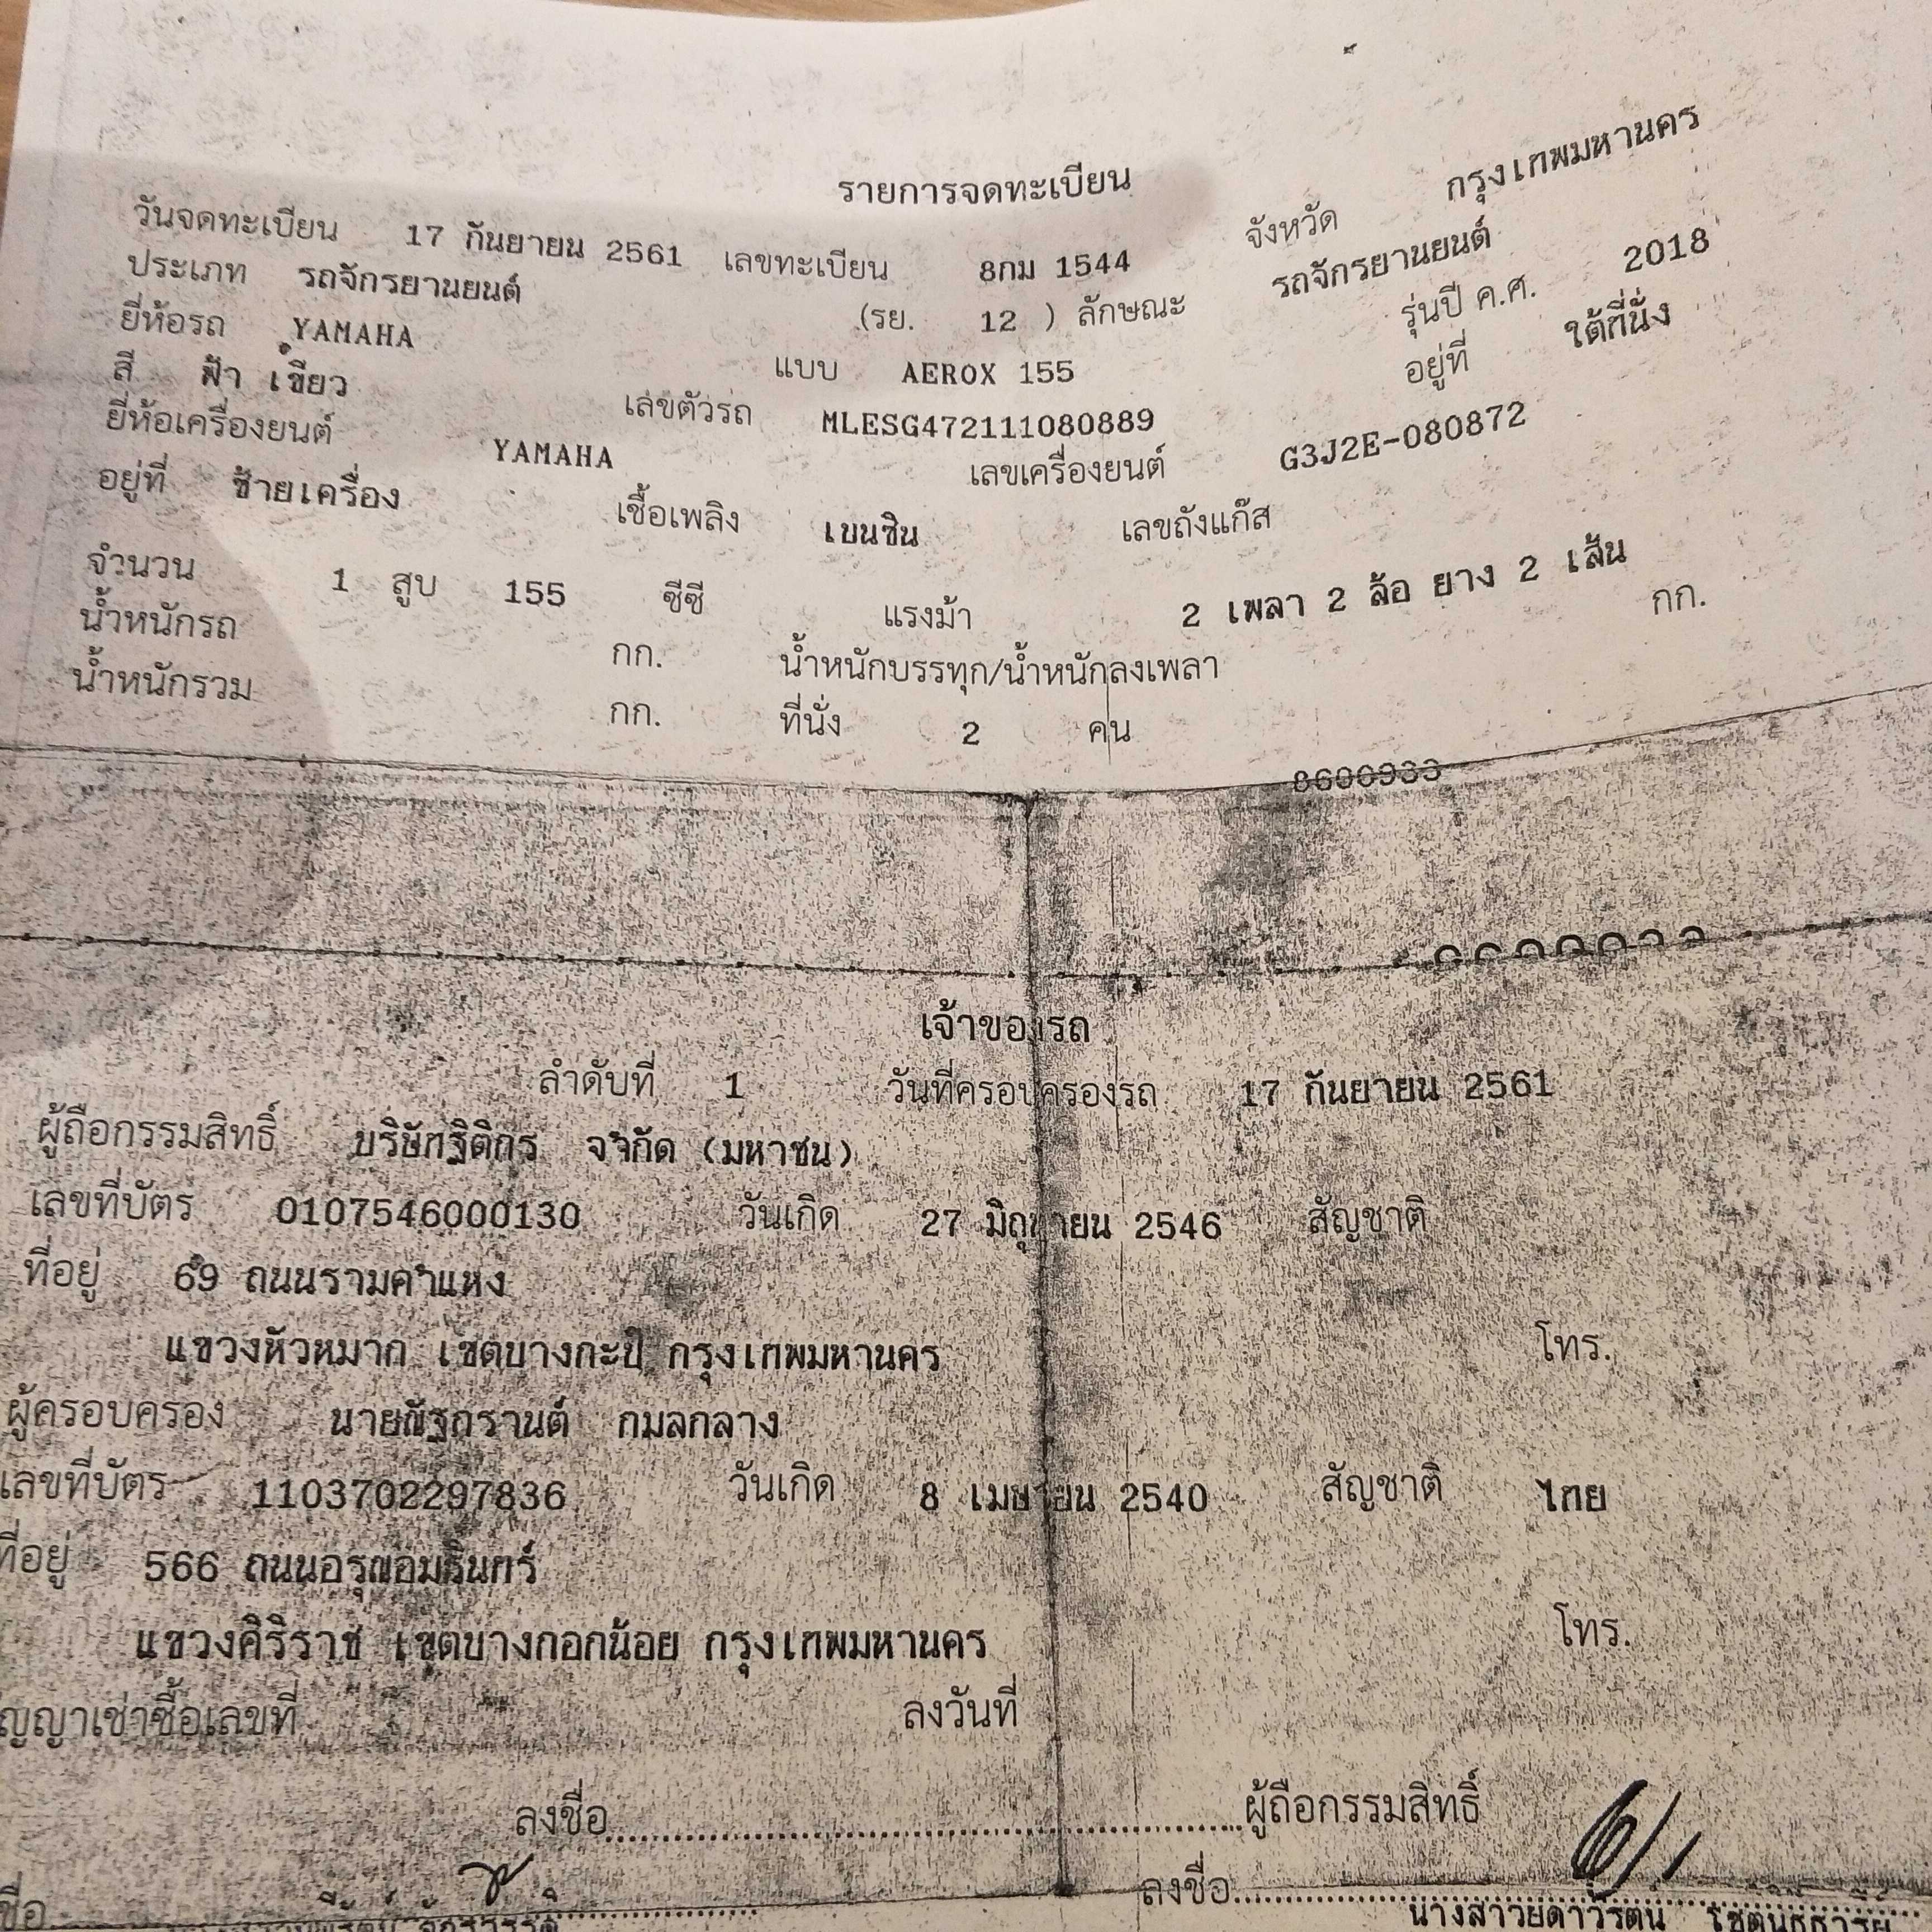 รายการจดทะเบียน
วันจดทะเบียน 17 กันยายน 2561 เลขทะเบียน 8กม 1544 จังหวัด กรุงเทพมหานคร
ประเภท รถจักรยานยนต์ (รย. 12 ) ลักษณะ รถจักรยานยนต์
ยี่ห้อรถ YAMAHA แบบ AEROX 155 รุ่นปี ค.ศ. 2018
สี ฟ้า เขียว เลขตัวรถ MLESG472111080889 อยู่ที่ ใต้ที่นั่ง
ยี่ห้อเครื่องยนต์ YAMAHA เลขเครื่องยนต์ G3J2E-080872
อยู่ที่ ซ้ายเครื่อง เชื้อเพลิง เบนซิน เลขถังแก๊ส
จำนวน 1 สูบ 155 ซีซี แรงม้า 2 เพลา 2 ล้อ ยาง 2 เส้น
น้ำหนักรถ กก. น้ำหนักบรรทุก/น้ำหนักลงเพลา กก.
น้ำหนักรวม กก. ที่นั่ง 2 คน
8600933
เจ้าของรถ
ลำดับที่ 1 วันที่ครอบครองรถ 17 กันยายน 2561
ผู้ถือกรรมสิทธิ์ บริษัทฐิติกร จำกัด (มหาชน)
เลขที่บัตร 0107546000130 วันเกิด 27 มิถุนายน 2546 สัญชาติ
ที่อยู่ 69 ถนนรามคำแหง
แขวงหัวหมาก เขตบางกะปิ กรุงเทพมหานคร โทร.
ผู้ครอบครอง นายณัฐกรานต์ กมลกลาง
เลขที่บัตร 1103702297836 วันเกิด 8 เมษายน 2540 สัญชาติ ไทย
ที่อยู่ 566 ถนนอรุณอมรินทร์
แขวงศิริราช เขตบางกอกน้อย กรุงเทพมหานคร โทร.
ญญาเช่าซื้อเลขที่ ลงวันที่
ลงชื่อ ผู้ถือกรรมสิทธิ์
ชื่อ ลงชื่อ
นางสาวยดาวรัตน์